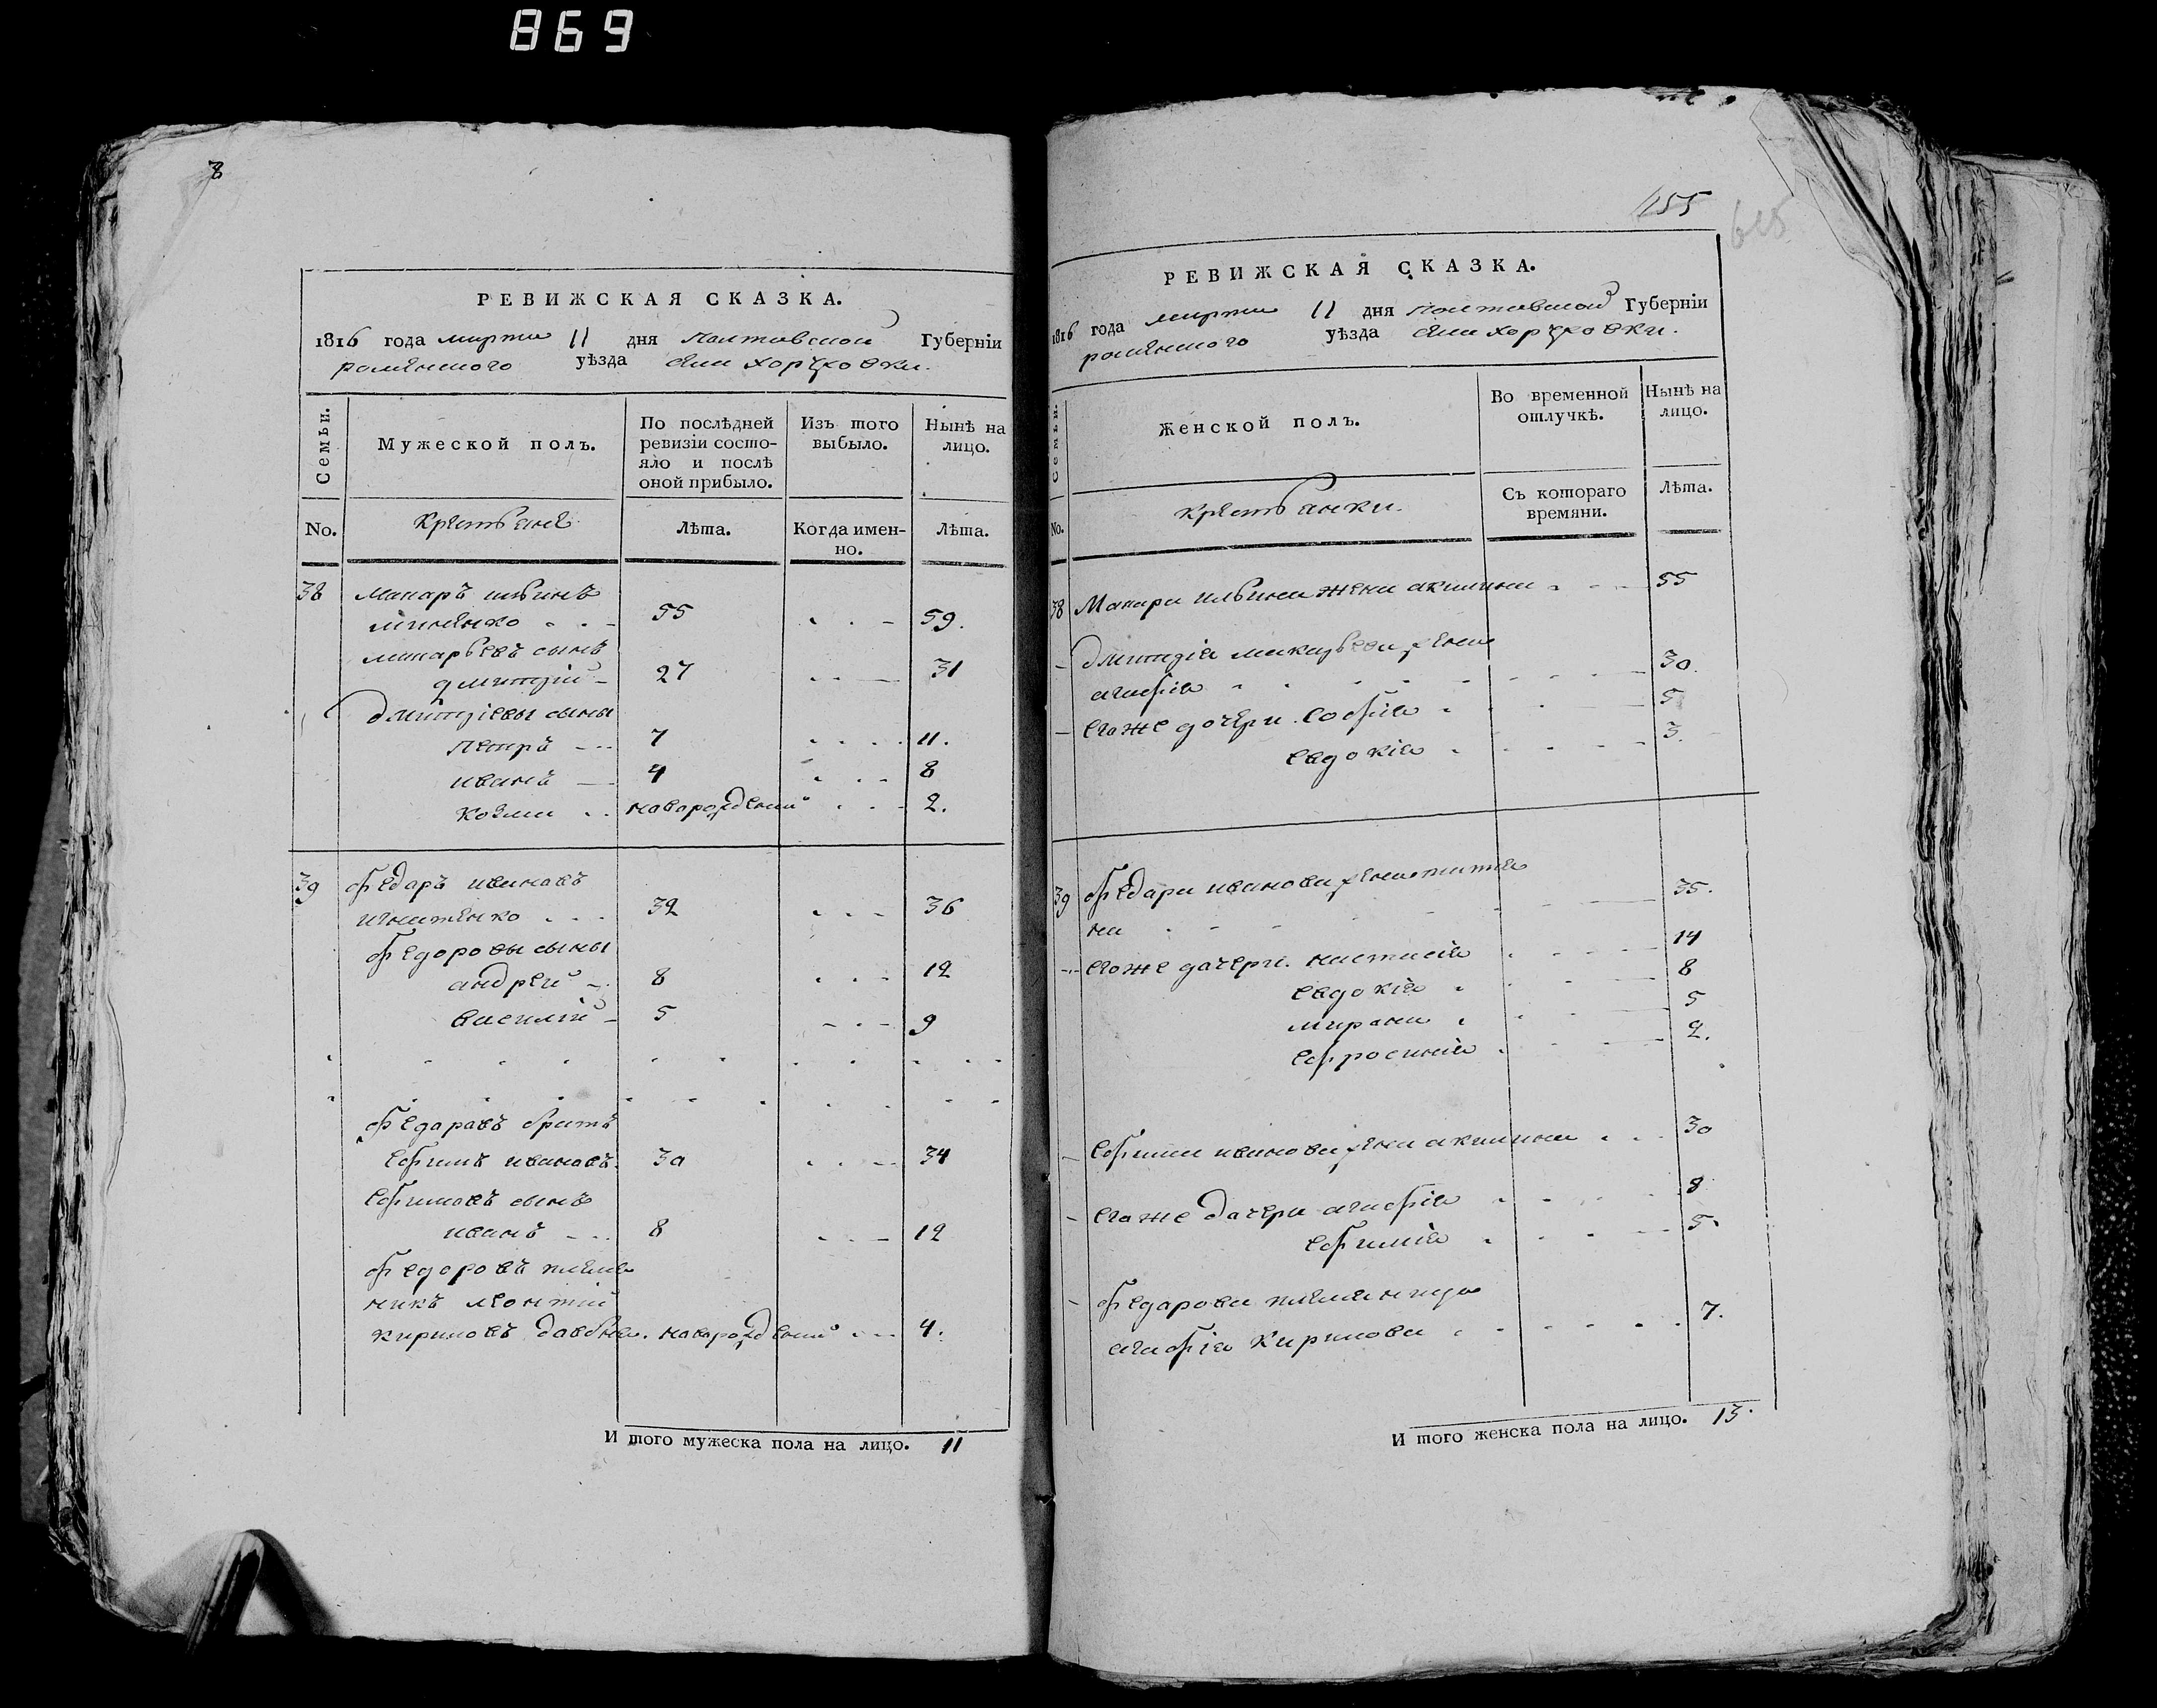 869
8
РЕВИЖСКАЯ СКАЗКА.
1816 года марта 11 дня полтавской Губерніи
роменского уѣзда села хоружовки.
Семьи.
Мужеской полъ.
По послѣдней ревизіи состояло и послѣ оной прибыло.
Изъ того выбыло.
Нынѣ на лицо.
No.
Крестьяне
Лѣта.
Когда именно.
Лѣта.
38 Макаръ ильинъ
миненко 55 59.
макарьевъ сынъ
дмитрій 27 31
дмитріевы сыны
петръ 7 11.
иванъ 4 8
козма новорожденый 2.
39 федоръ ивановъ
игнатенко 32 36
федоровы сыны
андрей 8 12
василій 5 9
федоровъ братъ
ефимъ ивановъ. 30 34
ефимовъ сынъ
иванъ 8 12
федоровъ племе
никъ леонтій
кириловъ новорожденый 4.
И того мужеска пола на лицо. 11
455
615
РЕВИЖСКАЯ СКАЗКА.
1816 года марта 11 дня полтавской Губерніи
роменского уѣзда села хоружовки.
Семьи.
Женской полъ.
Во временной отлучкѣ.
Нынѣ на лицо.
No.
крестьянки.
Съ котораго времяни.
Лѣта.
38 Макара ильина жена акилина 55
дмитрія макарьева жена
агафія 30.
егоже дочери. софія 5
евдокія 3.
39 федора иванова жена татия
на 35.
егоже дочери. настасія 14
евдокія 8
марана 5
ефросинія 2.
ефима иванова жена акилина 30
егоже дочери агафія 8
ефимія 5.
федорова племеница
агафія Кирилова 7.
И того женска пола на лицо. 13.